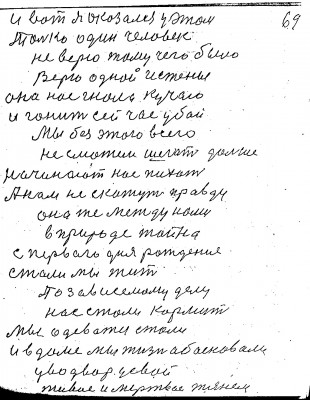 69
И вот я оказался у этом
Только один человек
не верю тому чего было
Верю одной истены
она нас гнала кучаю
и гонит сей час убой
Мы без этого всего
не сможем шегат дальше
начинают нас пихат
А нам не скажут правду
она же между нами
в природе тайна
с первого дня рождения
стали мы жит
По зависемому делу
нас стали кормит
мы одевати стали
и в доме мы жизн обасновали
живое и мертвое тянем